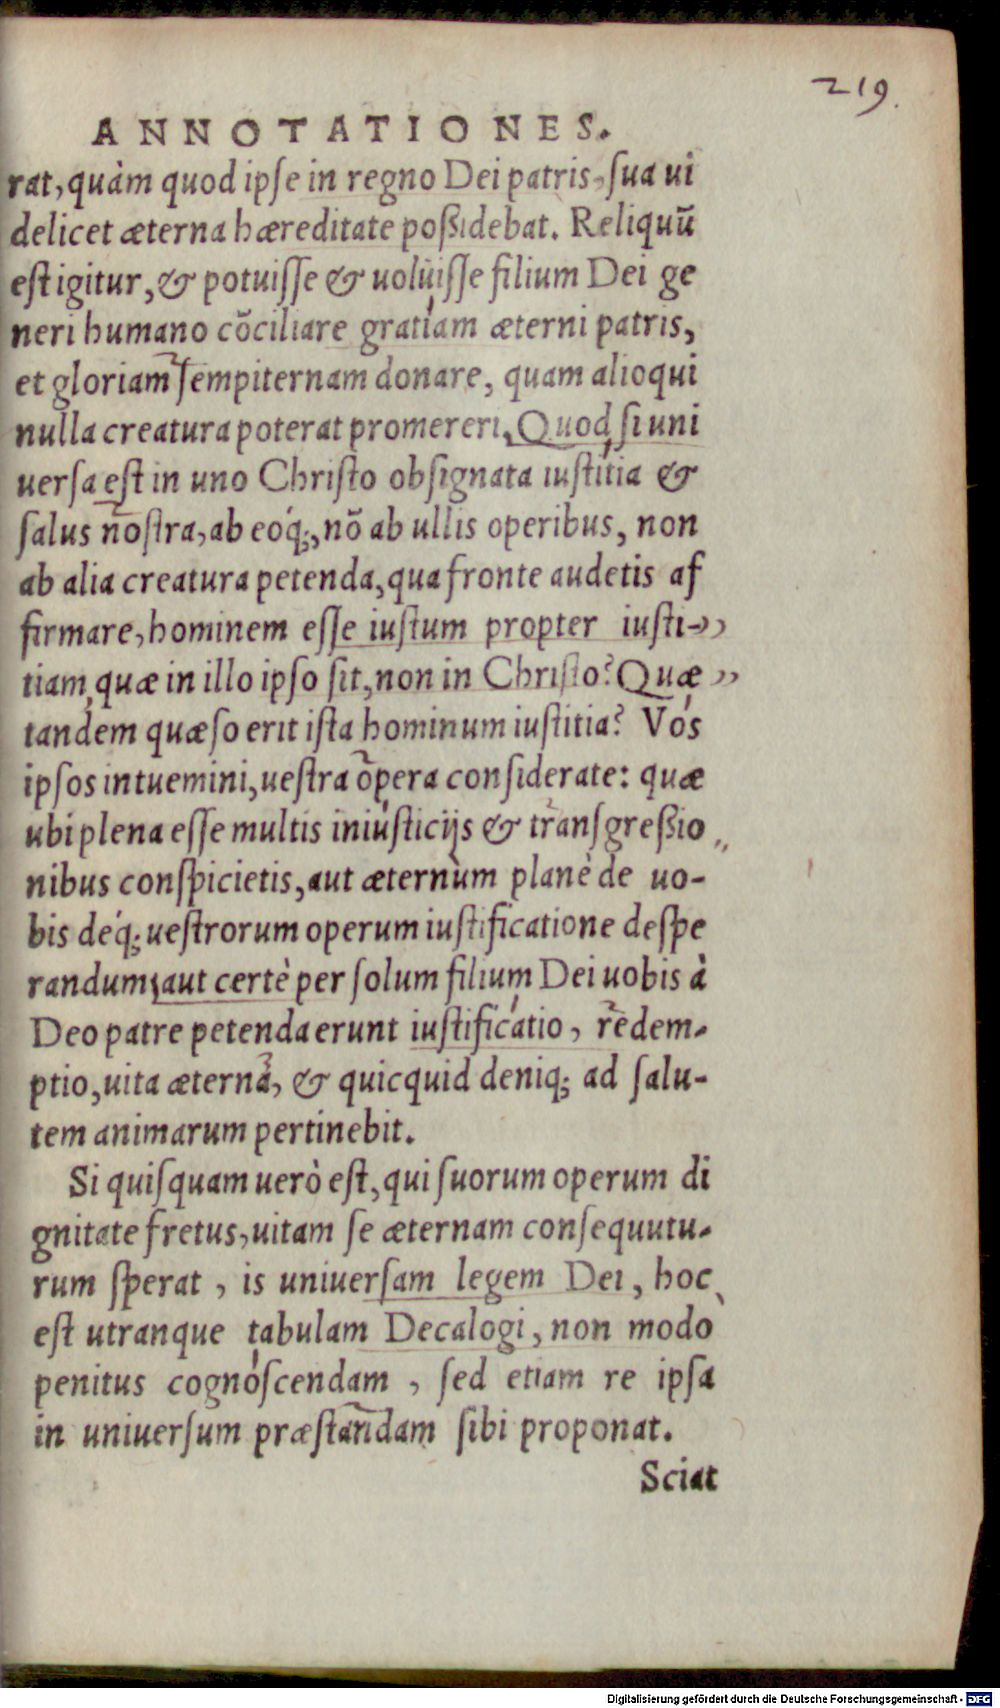 219.
ANNOTATIONES.
rat, quàm quod ipſe in regno Dei patris, ſua ui
delicet æterna hæreditate poßidebat. Reliquũ
eſt igitur, & potuiſſe & uoluiſſe filium Dei ge
neri humano cõciliare gratiam æterni patris,
et gloriam ſempiternam donare, quam alioqui
nulla creatura poterat promereri. Quod ſi uni
uerſa eſt in uno Chriſto obſignata iuſtitia &
ſalus noſtra, ab eóq;, nõ ab ullis operibus, non
ab alia creatura petenda, qua fronte audetis af
firmare, hominem eſſe iuſtum propter iuſti-
tiam, quæ in illo ipſo ſit, non in Chriſto? Quæ
tandem quæſo erit iſta hominum iuſtitia? Vos
ipſos intuemini, ueſtra opera conſiderate: quæ
ubi plena eſſe multis iniuſticijs & tranſgreßio
nibus conſpicietis, aut æternùm planè de uo-
bis déq; ueſtrorum operum iuſtificatione deſpe
randum, aut certè per ſolum filium Dei uobis à
Deo patre petenda erunt iuſtificatio, redem-
ptio, uita æterna, & quicquid deniq; ad ſalu-
tem animarum pertinebit.
Si quiſquam uerò eſt, qui ſuorum operum di
gnitate fretus, uitam ſe æternam conſequutu-
rum ſperat, is uniuerſam legem Dei, hoc
eſt utranque tabulam Decalogi, non modo
penitus cognoſcendam, ſed etiam re ipſa
in uniuerſum præſtandam ſibi proponat.
Sciat
Digitalisierung gefördert durch die Deutsche Forschungsgemeinschaft - DFG